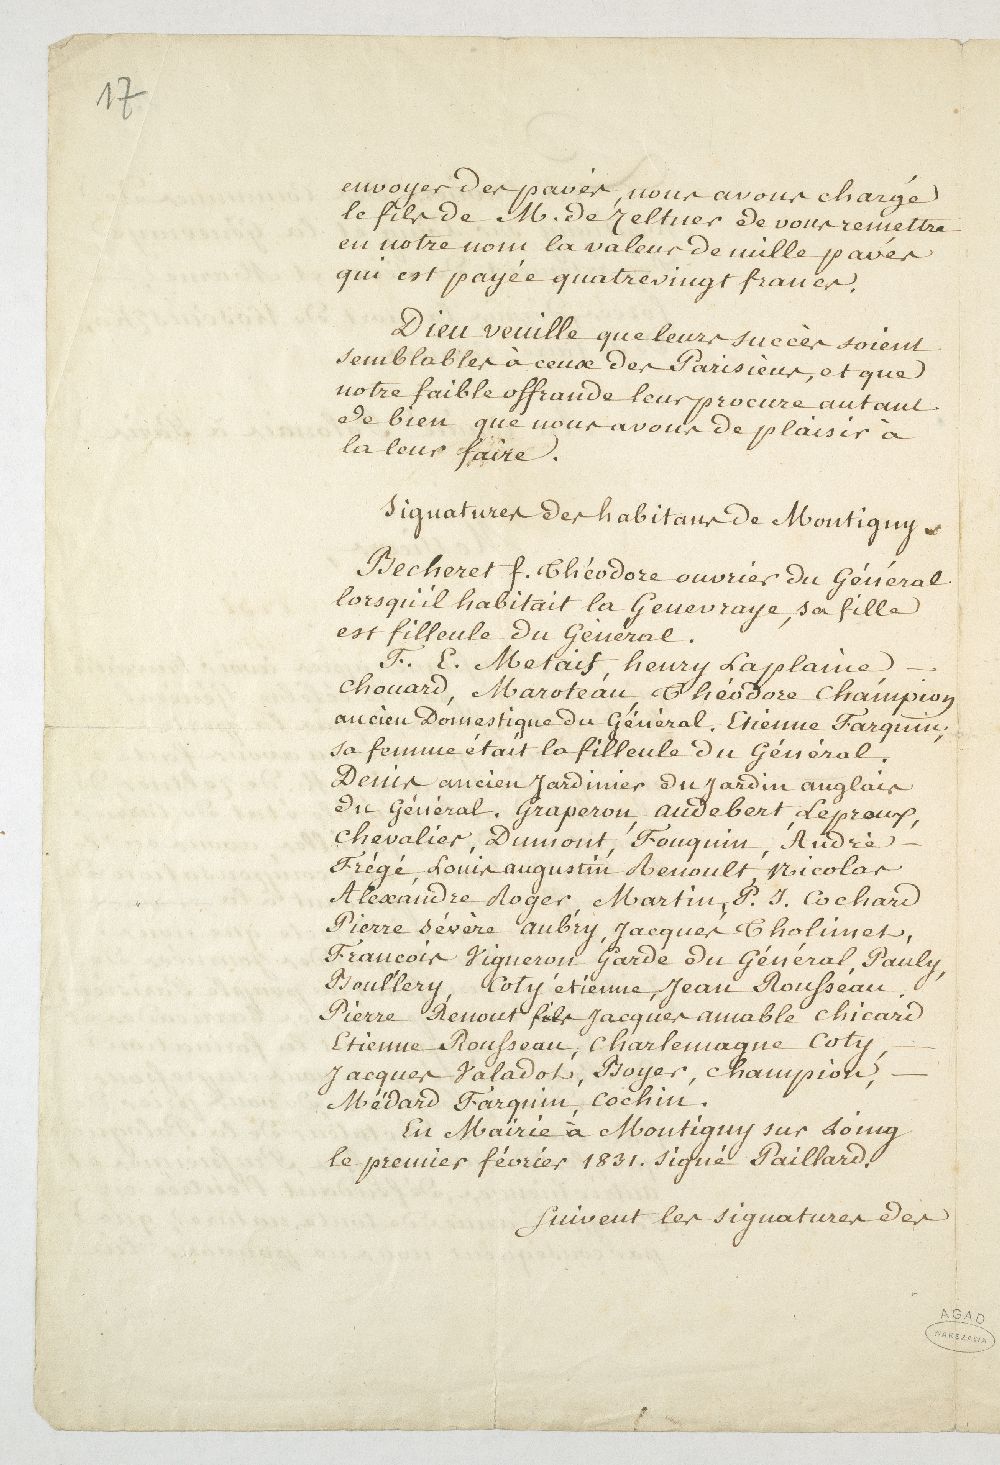 17
envoyer des pavés, nous avons chargé
le fils de M. de Zeltner de vous remettre
en notre nom la valeur de mille pavés
qui est payée quatrevingt francs.
Dieu veuille que leurs succès soient
semblables à ceux des Parisiens, et que
notre faible offrande leur procure autant
de bien que nous avons de plaisir à
la leur faire.
Signatures des habitans de Montigny.
Becheret f. Théodore ouvrier du Général
lorsqu'il habitait la Genevraye, sa fille
est filleule du Général.
F. E. Metais, henry Laplaine —
Chouard, Maroteau, Théodore Champion
ancien Domestique du Général. Etienne Farquin,
sa femme était la filleule du Général.
Denis ancien Jardinier du Jardin anglais
du Général. Graperon, audebert, Leproux,
Chevalier, Dumont, Fouquin, André —
Frégé, Louis augustin Renoult, Nicolas
Alexandre Roger, Martin, P. J. Cochard
Pierre Sévère aubry, Jacques Tholimet,
François Vigneron Garde du Général, Pauly,
Boullery, Coty étienne, Jean Rousseau.
Pierre Renout fils Jacques amable Chicard
Etienne Rousseau, Charlemagne Coty, —
Jacques Valadot, Boyer, Champion, —
Médard Farquin, Cochin.
En Mairie à Montigny sur Loing
le premier février 1831. signé Paillard.
Suivent les signatures des
AGAD
WARSZAWA